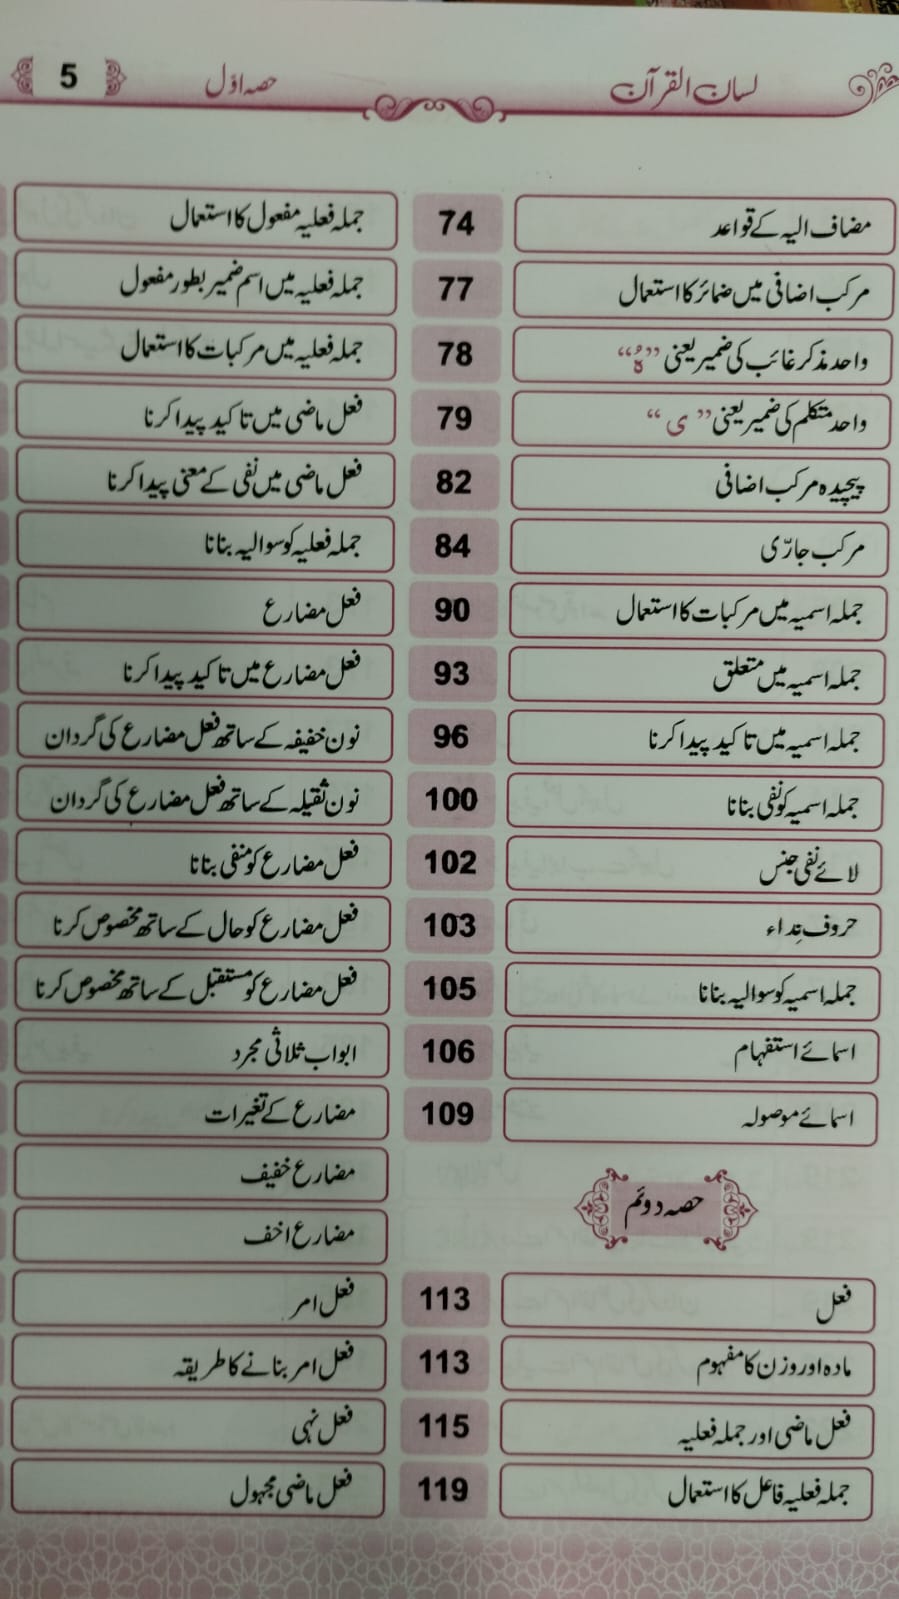 لسان القرآن
حصہ اوّل
5
مضاف الیہ کے قواعد 74
مرکب اضافی میں ضمائر کا استعمال 77
واحد مذکر غائب کی ضمیر یعنی ”هٗ“ 78
واحد متکلم کی ضمیر یعنی ”ی“ 79
پیچیدہ مرکب اضافی 82
مرکب جارّی 84
جملہ اسمیہ میں مرکبات کا استعمال 90
جملہ اسمیہ میں متعلق 93
جملہ اسمیہ میں تاکید پیدا کرنا 96
جملہ اسمیہ کو نفی بنانا 100
لائے نفی جنس 102
حروف نِداء 103
جملہ اسمیہ کو سوالیہ بنانا 105
اسمائے استفہام 106
اسمائے موصولہ 109
حصہ دوئم
فعل 113
مادہ اور وزن کا مفہوم 113
فعل ماضی اور جملہ فعلیہ 115
جملہ فعلیہ فاعل کا استعمال 119
جملہ فعلیہ مفعول کا استعمال
جملہ فعلیہ میں اسم ضمیر بطور مفعول
جملہ فعلیہ میں مرکبات کا استعمال
فعل ماضی میں تاکید پیدا کرنا
فعل ماضی میں نفی کے معنی پیدا کرنا
جملہ فعلیہ کو سوالیہ بنانا
فعل مضارع
فعل مضارع میں تاکید پیدا کرنا
نون خفیفہ کے ساتھ فعل مضارع کی گردان
نون ثقیلہ کے ساتھ فعل مضارع کی گردان
فعل مضارع کو منفی بنانا
فعل مضارع کو حال کے ساتھ مخصوص کرنا
فعل مضارع کو مستقبل کے ساتھ مخصوص کرنا
ابواب ثلاثی مجرد
مضارع کے تغیرات
مضارع خفیف
مضارع اخف
فعل امر
فعل امر بنانے کا طریقہ
فعل نہی
فعل ماضی مجہول